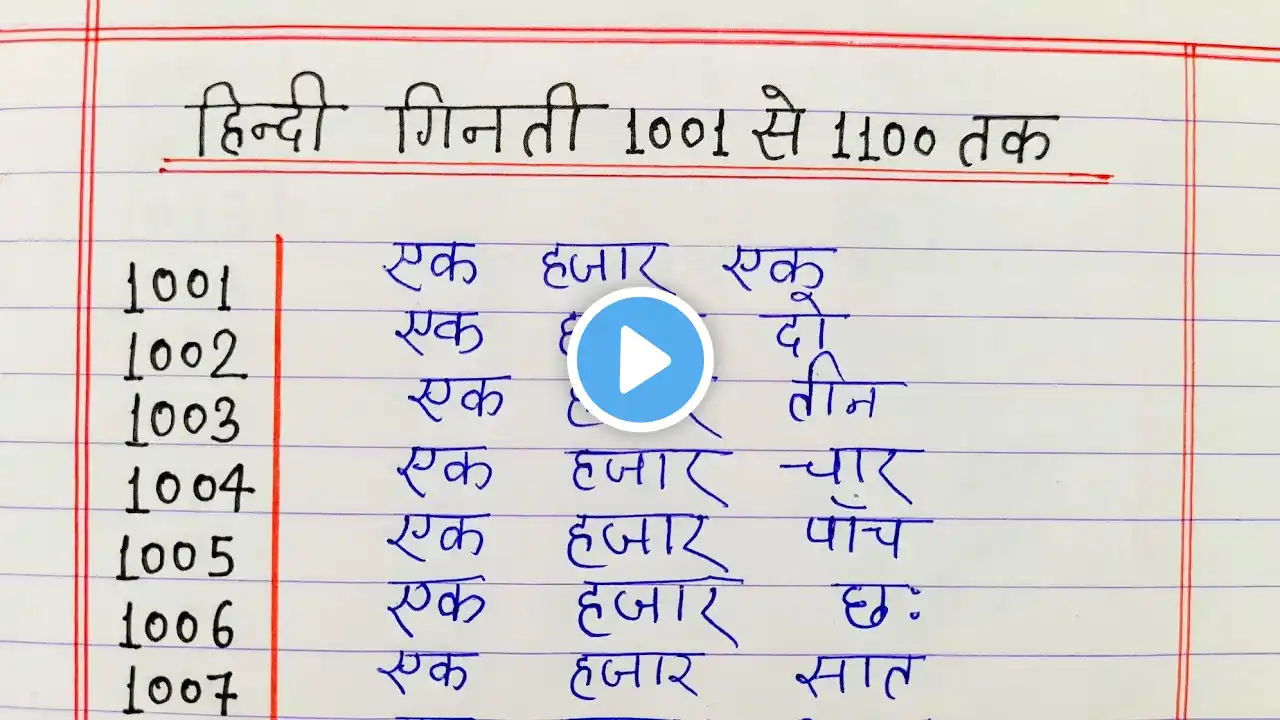 हिन्दी गिनती 1001 से 1100 तक
1001 एक हजार एक
1002 एक दो
1003 एक तीन
1004 एक हजार चार
1005 एक हजार पाँच
1006 एक हजार छः
1007 एक हजार सात